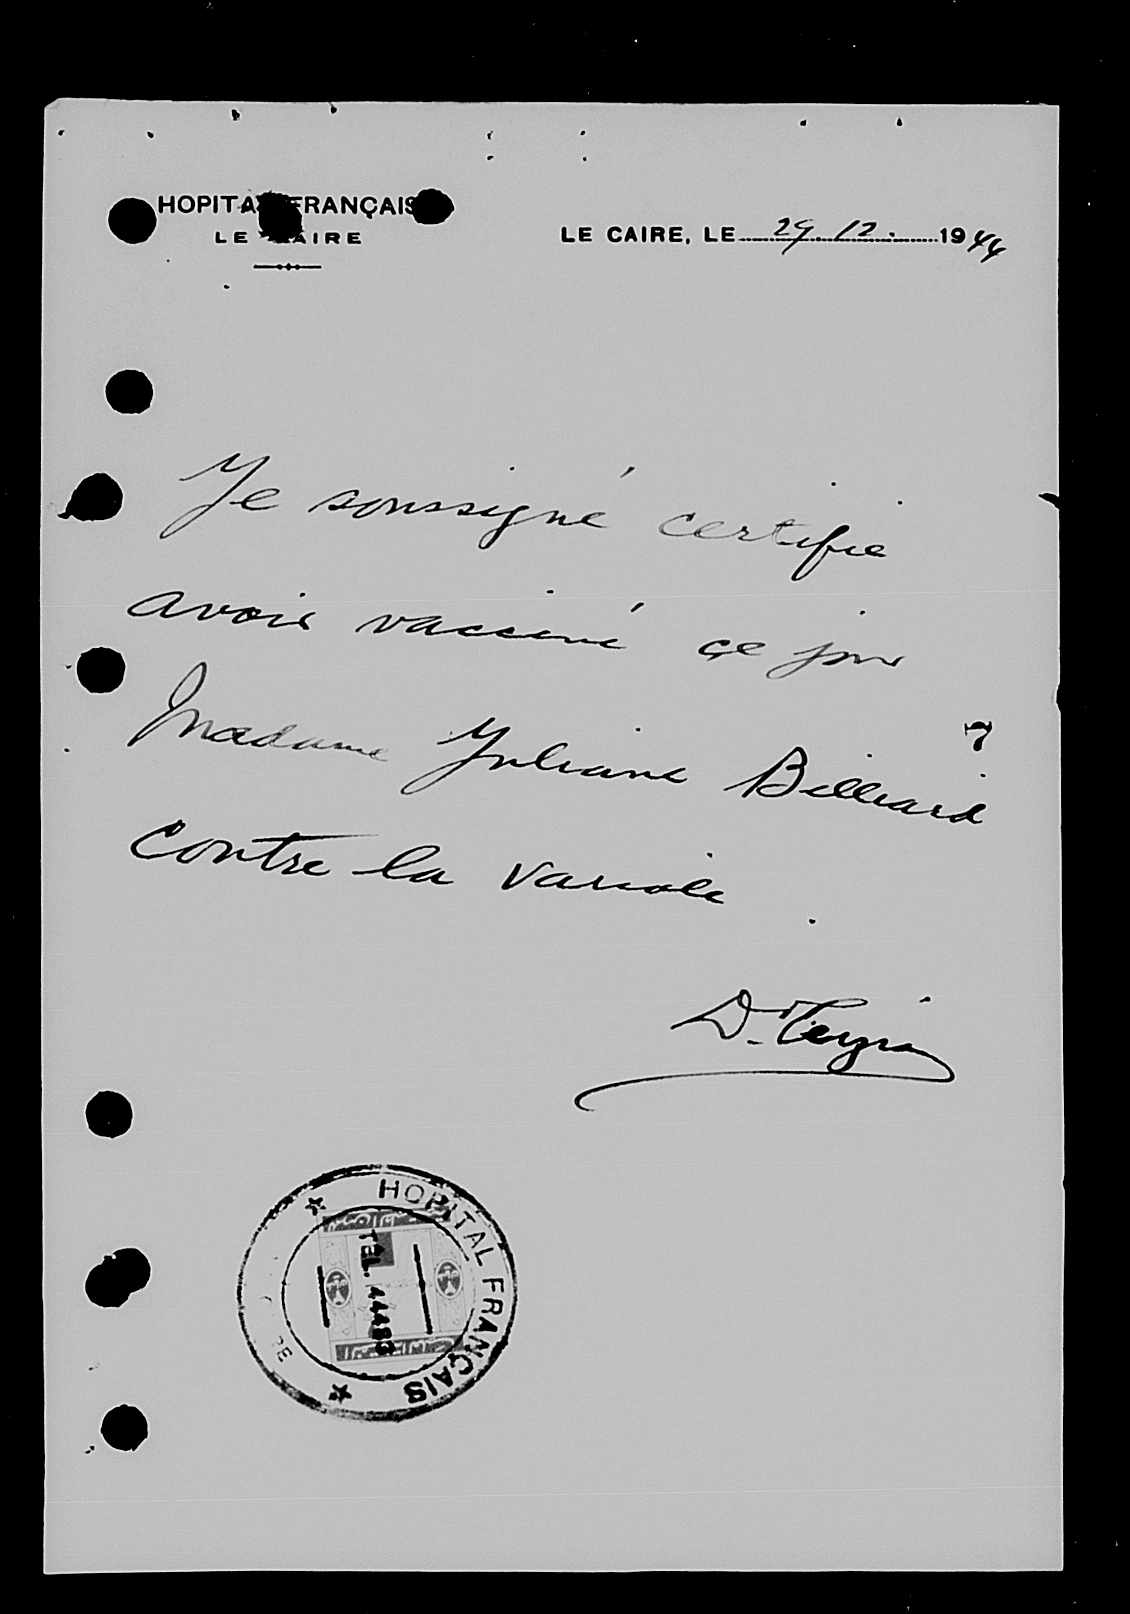 HOPITAL FRANÇAIS
LE CAIRE
LE CAIRE, LE 29.12. 1944
Je soussigné certifie
avoir vacciné ce jour
Madame Juliane Billiard
contre la variole
Dr.
HOPITAL FRANÇAIS
TÉL. 44483